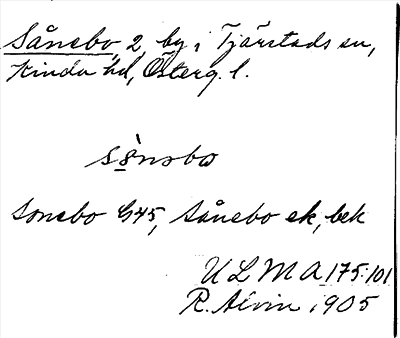 Sånebo, 2, by i Tjärstads sn,
Kinda hd, Österg. l.
sò̱nəbω
Sonebo G45, Sånebo ek, bek
ULMA 175:101
R. Alvin 1905